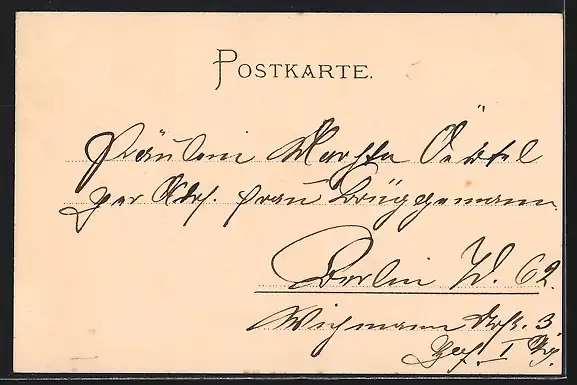 POSTKARTE.
Fräulein Martha Oertel
per Adr. Frau Brüggemann
Berlin W. 62.
Wichmann Str. 3
I